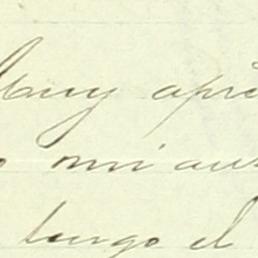 Muy apre
mi aus
tengo el